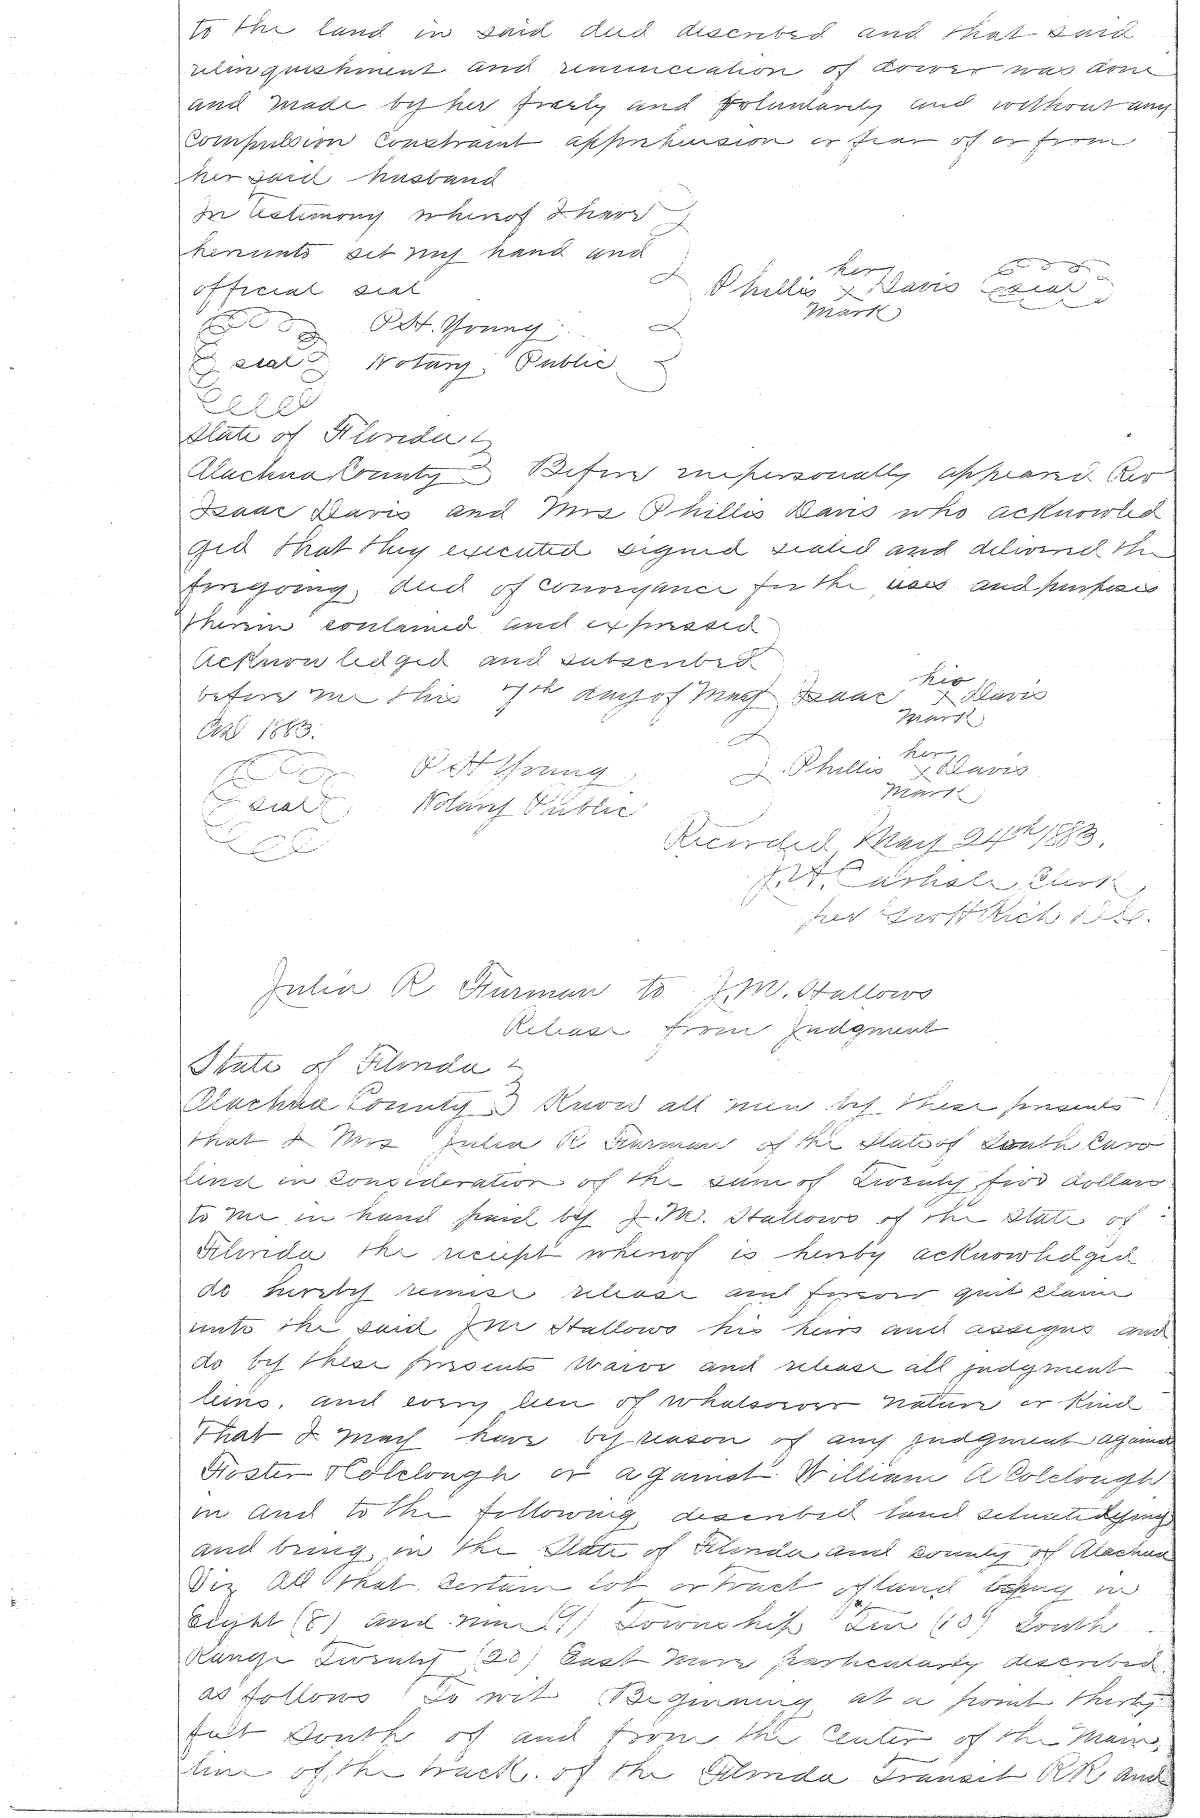 to the land in said deed described and that said
relinquishment and renunciation of dower was done
and made by her freely and voluntarily and without any
compulsion constraint apprehension or fear of or from
her said husband
In testimony whereof I have
hereunto set my hand and
official seal
her
Phillis x Davis seal
mark
P.H. Young
seal Notary Public
State of Florida
Alachua County Before me personally appeared Rev
Isaac Davis and Mrs Phillis Davis who acknowled
ged that they executed signed sealed and delivered the
foregoing deed of conveyance for the uses and purposes
therein contained and expressed
Acknowledged and subscribed
before me this 7th day of May
AD 1883.
his
Isaac x Davis
mark
her
Phillis x Davis
mark
P H Young
seal Notary Public
Recorded May 24th 1883.
J.A. Carlisle Clerk
per
Julia R Furman to J.M. Hallows
Release from Judgment
State of Florida
Alachua County Know all men by these presents
that I Mrs Julia R Furman of the State of South Caro
lina in consideration of the sum of Twenty five dollars
to me in hand paid by J.M. Hallows of the State of
Florida the reciept whereof is hereby acknowledged
do hereby remise release and forever quit claim
unto the said J M Hallows his heirs and assigns and
do by these presents waive and release all judgment
leins, and every lien of whatsoever nature or kind
that I may have by reason of any judgment against
Foster Holclough or against William A Colclough
in and to the following described land situate lying
and being in the State of Florida and county of Alachua
Viz All that certain lot or tract of land lying in
Eight (8) and nine (9) Township Ten (10) South
Range Twenty (20) East more particularly described
as follows To wit Beginning at a point thirty
feet South of and from the Center of the Main
line of the track of the Florida Transit RR and